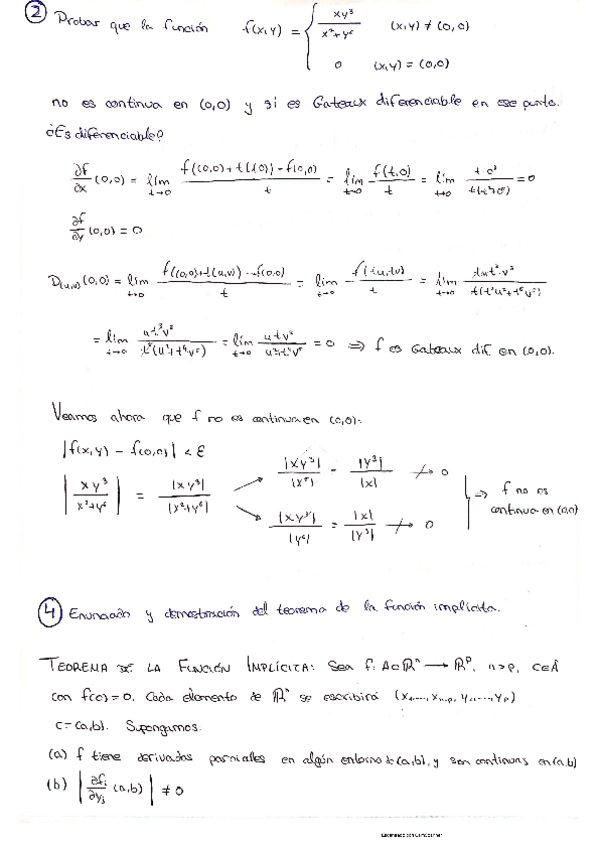 ② Probar que la función f(x,y) = { xy³/(x²+y⁶) (x,y) ≠ (0,0)
0 (x,y) = (0,0)
no es continua en (0,0) y si es Gateaux diferenciable en ese punto.
¿Es diferenciable?
∂f/∂x (0,0) = lím t→0 f((0,0)+t(1,0)) - f(0,0) / t = lím t→0 f(t,0)/t = lím t→0 t·0³ / t(t²+0⁶) = 0
∂f/∂y (0,0) = 0
D(u,v)(0,0) = lím t→0 f((0,0)+t(u,v)) - f(0,0) / t = lím t→0 f(tu,tv) / t = lím t→0 tut³v³ / t(t²u²+t⁶v⁶)
= lím t→0 = lím t→0 = 0 ⇒ f es Gateaux dif. en (0,0).
Veamos ahora que f no es continua en (0,0):
|f(x,y) - f(0,0)| < ε
|xy³/(x²+y⁶)| = |xy³|/|x²+y⁶| |xy³|/|x²| = |y³|/|x| ↛ 0
|xy³|/|y⁶| = |x|/|y³| ↛ 0
⇒ f no es
continua en (0,0)
④ Enunciado y demostración del teorema de la función implícita.
TEOREMA DE LA FUNCIÓN IMPLÍCITA: Sea f: A⊂ℝⁿ → ℝᵖ, n>p, c∈Å
con f(c)=0. Cada elemento de ℝⁿ se escribirá (x₁,...,xₙ₋ₚ, y₁,...,yₚ)
c=(a,b). Supongamos:
(a) f tiene derivadas parciales en algún entorno de (a,b), y son continuas en (a,b)
(b) |∂fᵢ/∂yⱼ (a,b)| ≠ 0